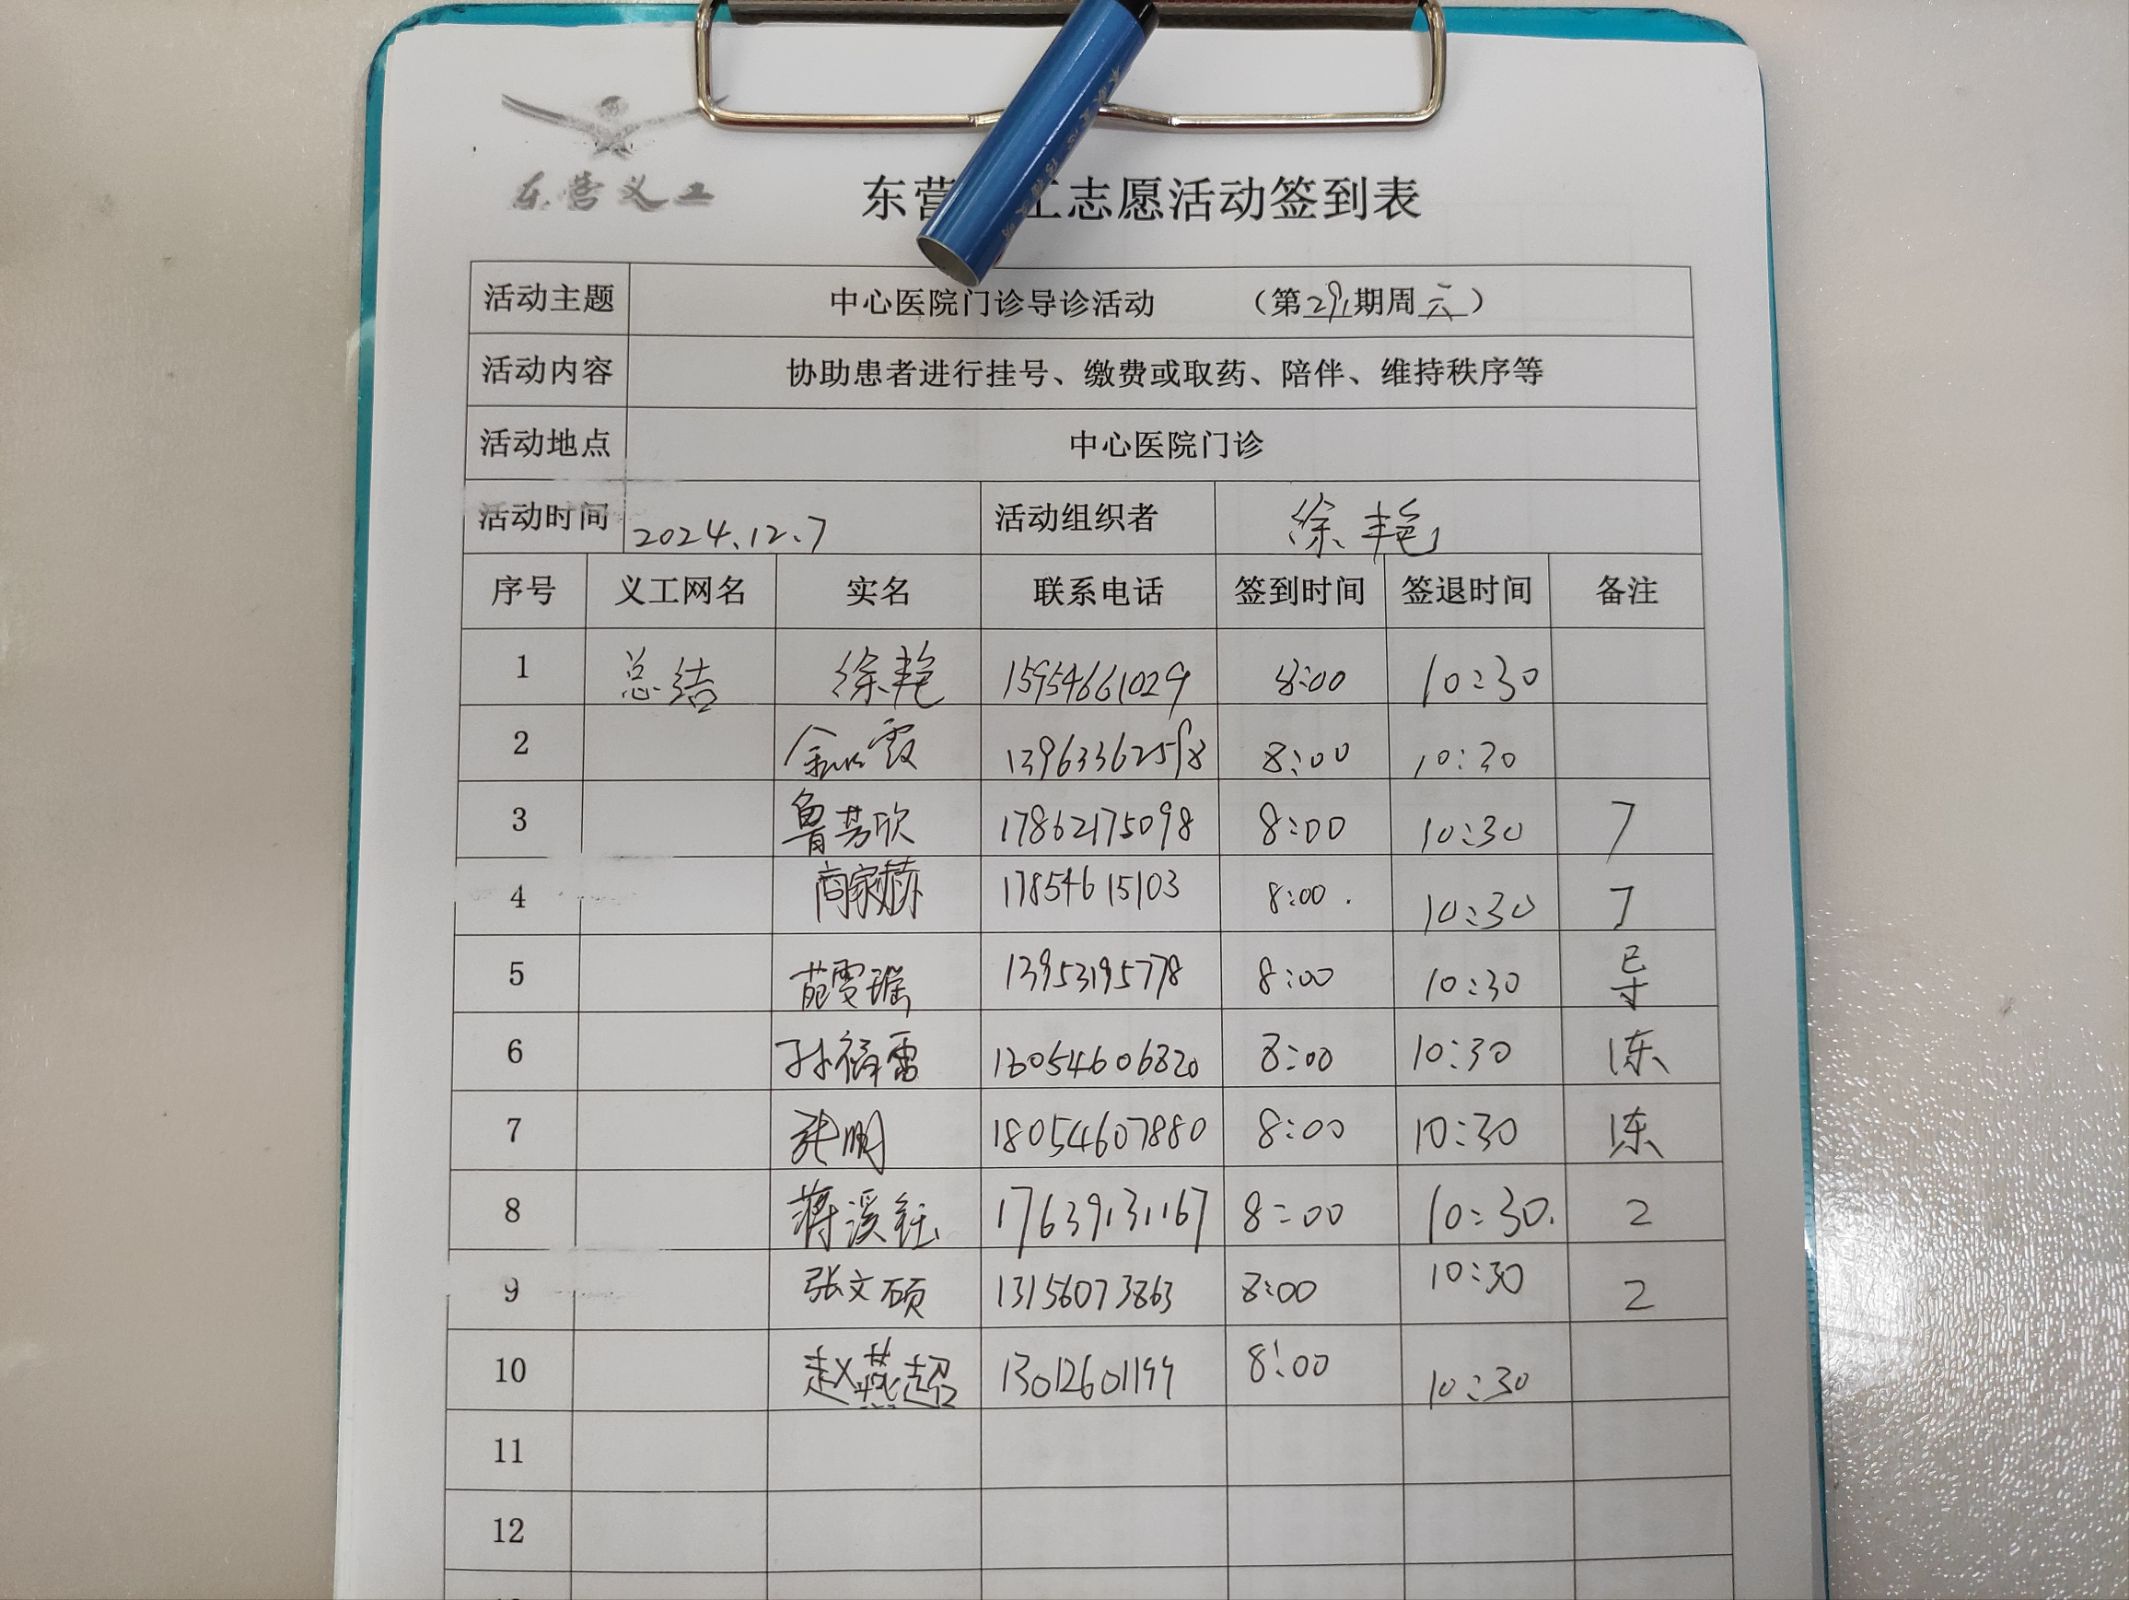 东营义工
东营 工志愿活动签到表
活动主题 中心医院门诊导诊活动 （第291期周六）
活动内容 协助患者进行挂号、缴费或取药、陪伴、维持秩序等
活动地点 中心医院门诊
活动时间 2024.12.7 活动组织者 徐艳
序号 义工网名 实名 联系电话 签到时间 签退时间 备注
1 总结 徐艳 15954661029 8:00 10:30
2 13963362598 8:00 10:30
3 鲁芳欣 17862175098 8:00 10:30 7
4 商家赫 17854615103 8:00 10:30 7
5 苑雯瑶 13953195778 8:00 10:30 导
6 8:00 10:30 冻
7 张鹏 18054607880 8:00 10:30 冻
8 蒋溪钰 17639131167 8:00 10:30. 2
9 张文硕 13156073863 8:00 10:30 2
10 赵燕超 13012601199 8:00 10:30
11
12